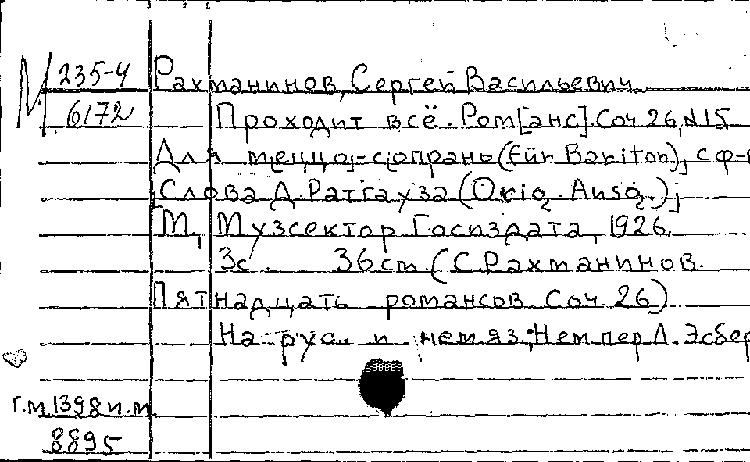 М 235-4
6172
Рахманинов, Сергей Васильевич.
Проходит всё. Ром[анс]. Соч 26, №15
Для меццо-сопрано (Für Bariton), с ф-
Слова Д. Ратгауза (Orig. Ausg.);
М, Музсектор Госиздата, 1926.
3с. 36cm (С. Рахманинов.
Пятнадцать романсов. Соч. 26)
На рус. и нем яз; Нем. пер Л. Эсбер
Г.м 1398 п.м.
8895